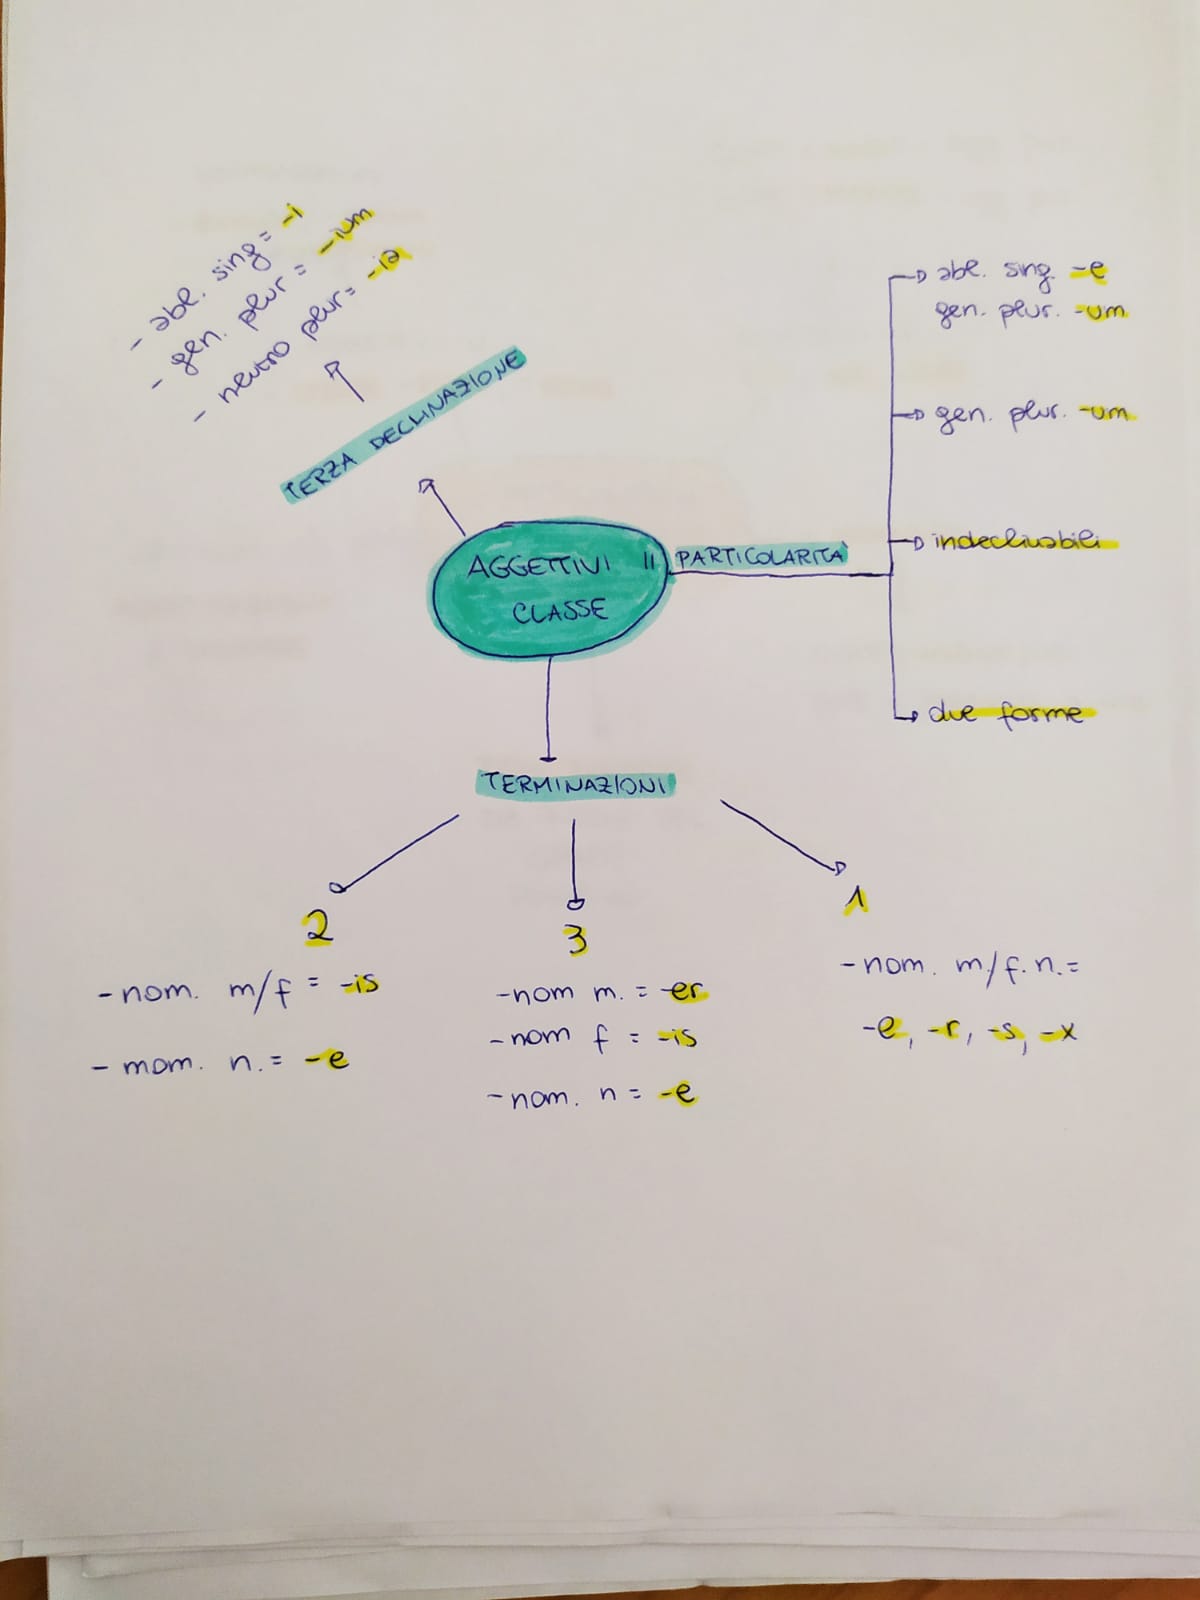 - abl. sing = -i
- gen. plur = -ium
- neutro plur = -ia
TERZA DECLINAZIONE
AGGETTIVI II
CLASSE
PARTICOLARITÀ
abl. sing. -e
gen. plur. -um
gen. plur. -um
indeclinabili
due forme
TERMINAZIONI
2
- nom. m/f = -is
- mom. n. = -e
3
- nom m. = -er
- nom f = -is
- nom. n = -e
1
- nom. m/f. n. =
-e, -r, -s, -x